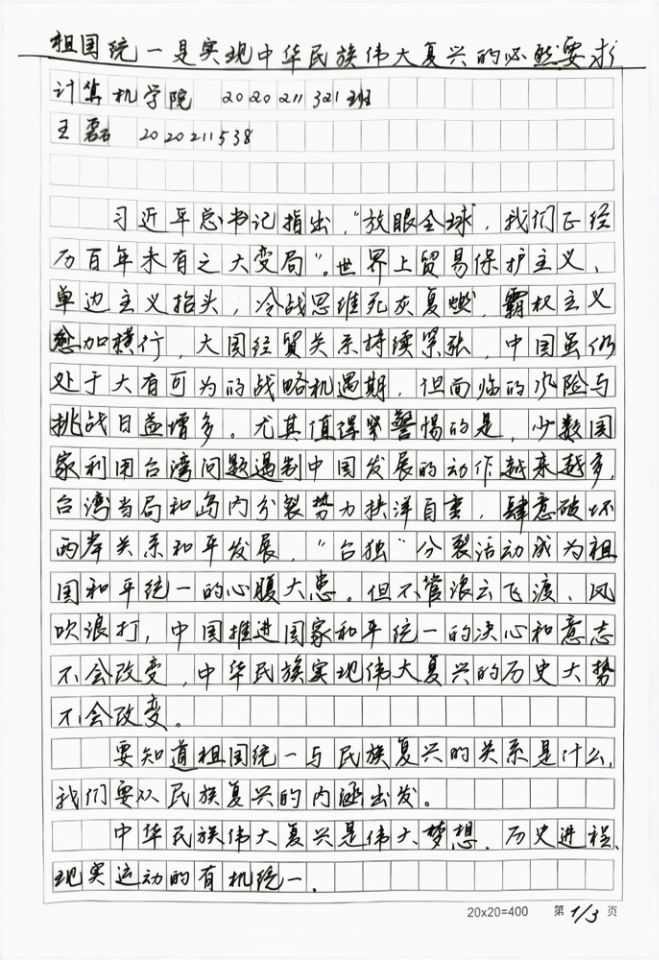 祖国统一是实现中华民族伟大复兴的必然要求
计算机学院 2020211321班
王磊 2020211538
习近平总书记指出，"放眼全球，我们正经
历百年未有之大变局"。世界上贸易保护主义、
单边主义抬头，冷战思维死灰复燃，霸权主义
愈加横行，大国经贸关系持续紧张，中国虽仍
处于大有可为的战略机遇期，但面临的风险与
挑战日益增多。尤其值得警惕的是，少数国
家利用台湾问题遏制中国发展的动作越来越多，
台湾当局和岛内分裂势力挟洋自重，肆意破坏
两岸关系和平发展，"台独"分裂活动成为祖
国和平统一的心腹大患。但不管浪云飞渡、风
吹浪打，中国推进国家和平统一的决心和意志
不会改变，中华民族实现伟大复兴的历史大势
不会改变。
要知道祖国统一与民族复兴的关系是什么，
我们要从民族复兴的内涵出发。
中华民族伟大复兴是伟大梦想、历史进程、
现实运动的有机统一。
20x20=400 第1/3页